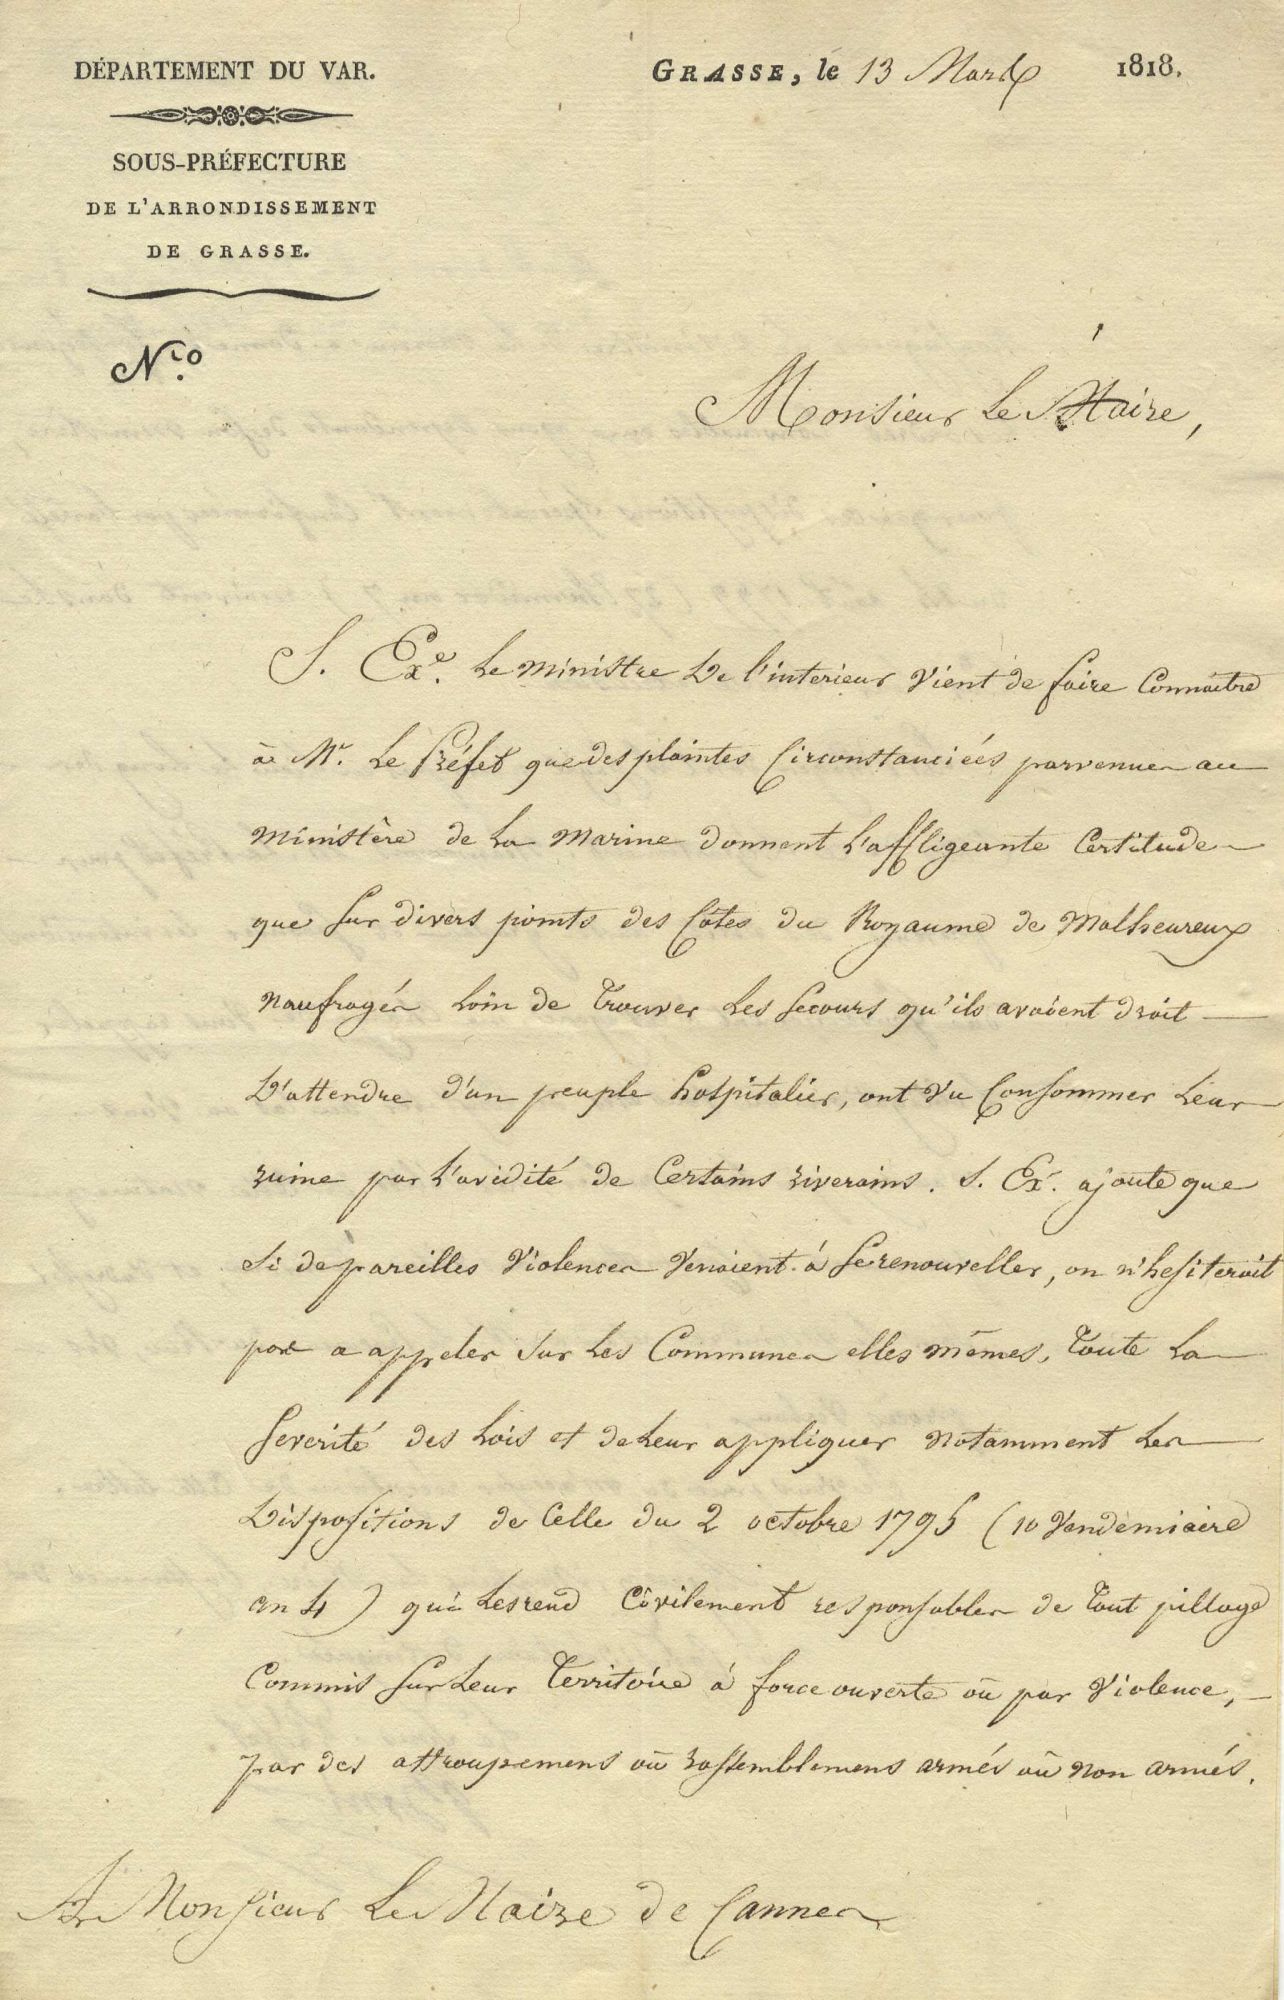 DÉPARTEMENT DU VAR.
GRASSE, le 13 Mars 1818.
SOUS-PRÉFECTURE
DE L'ARRONDISSEMENT
DE GRASSE.
N.o
Monsieur Le Maire,
S. Exe. Le Ministre De l'interieur Vient de faire Connaître
à Mr. Le Préfet que des plaintes Circonstanciéés parvenues au
Ministère de La Marine donnent L'affligeante Certitude
que Sur divers points des Côtes du Royaume de Malheureux
Naufragés Loin de Trouver Les Secours qu'ils avoient droit
D'attendre d'un peuple hospitalier, ont Vu Consommer Leur
ruine par L'avidité de Certains riverains. S. Ex. ajoute que
Si de pareilles Violences Venoient à Se renouveller, on n'hesiteroit
pas a appeler Sur Les Communes elles mêmes, Toute La
Severité des Lois et de Leur appliquer Notamment Les
Dispositions de Celle du 2 octobre 1795 (10 Vendemiaire
an 4) qui Les rend Civilement responsables de Tout pillage
Commis Sur Leur Territoire à force ouverte oû par Violence,
par des attroupemens oû rassemblemens armés oû Non armés.
A Monsieur Le Maire de Cannes